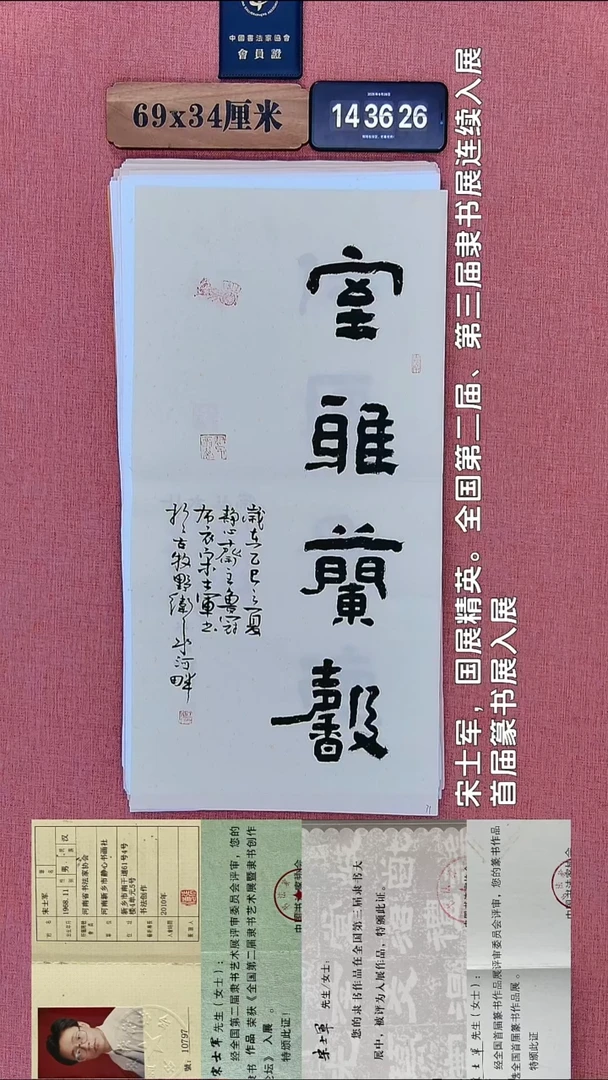 中國書法家協會
會員證
69x34厘米
14 36 26
室雅蘭馨
歲在乙巳之夏
静心齋主魯冠
布衣宋士軍书
於古牧野衛水河畔
宋士军，国展精英。全国第二届、第三届隶书展连续入展
首届篆书展入展
宋士军
1968.11
男
汉
河南省书法家协会
河南新乡市静心书画社
新乡市南干道61号4号
楼4单元5号
书法创作
2010年
號：10797
宋士军 先生（女士）：
经全国第二届隶书艺术展评审委员会评审，您的
隶书 作品 荣获《全国第二届隶书艺术展暨隶书创作
论坛》 入展 。
特颁此证！
宋士军 先生/女士：
您的隶书作品在全国第三届隶书大
展中，被评为入展作品，特颁此证。
士军 先生（女士）：
经全国首届篆书作品展评审委员会评审，您的篆书作品
全国首届篆书作品展。
特颁此证